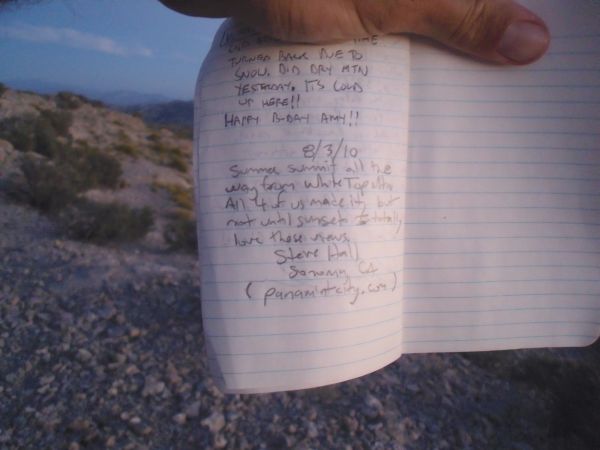 TIME
TURNED BACK DUE TO
SNOW. DID DRY MTN
YESTERDAY. IT'S COLD
UP HERE!!
HAPPY B-DAY AMY!!
8/3/10
Summer summit all the
way from White Top Mtn
All 4 of us made it, but
not until sunset totally
love these views
Steve Hall
Sonoma, CA
(panamintcity.com)